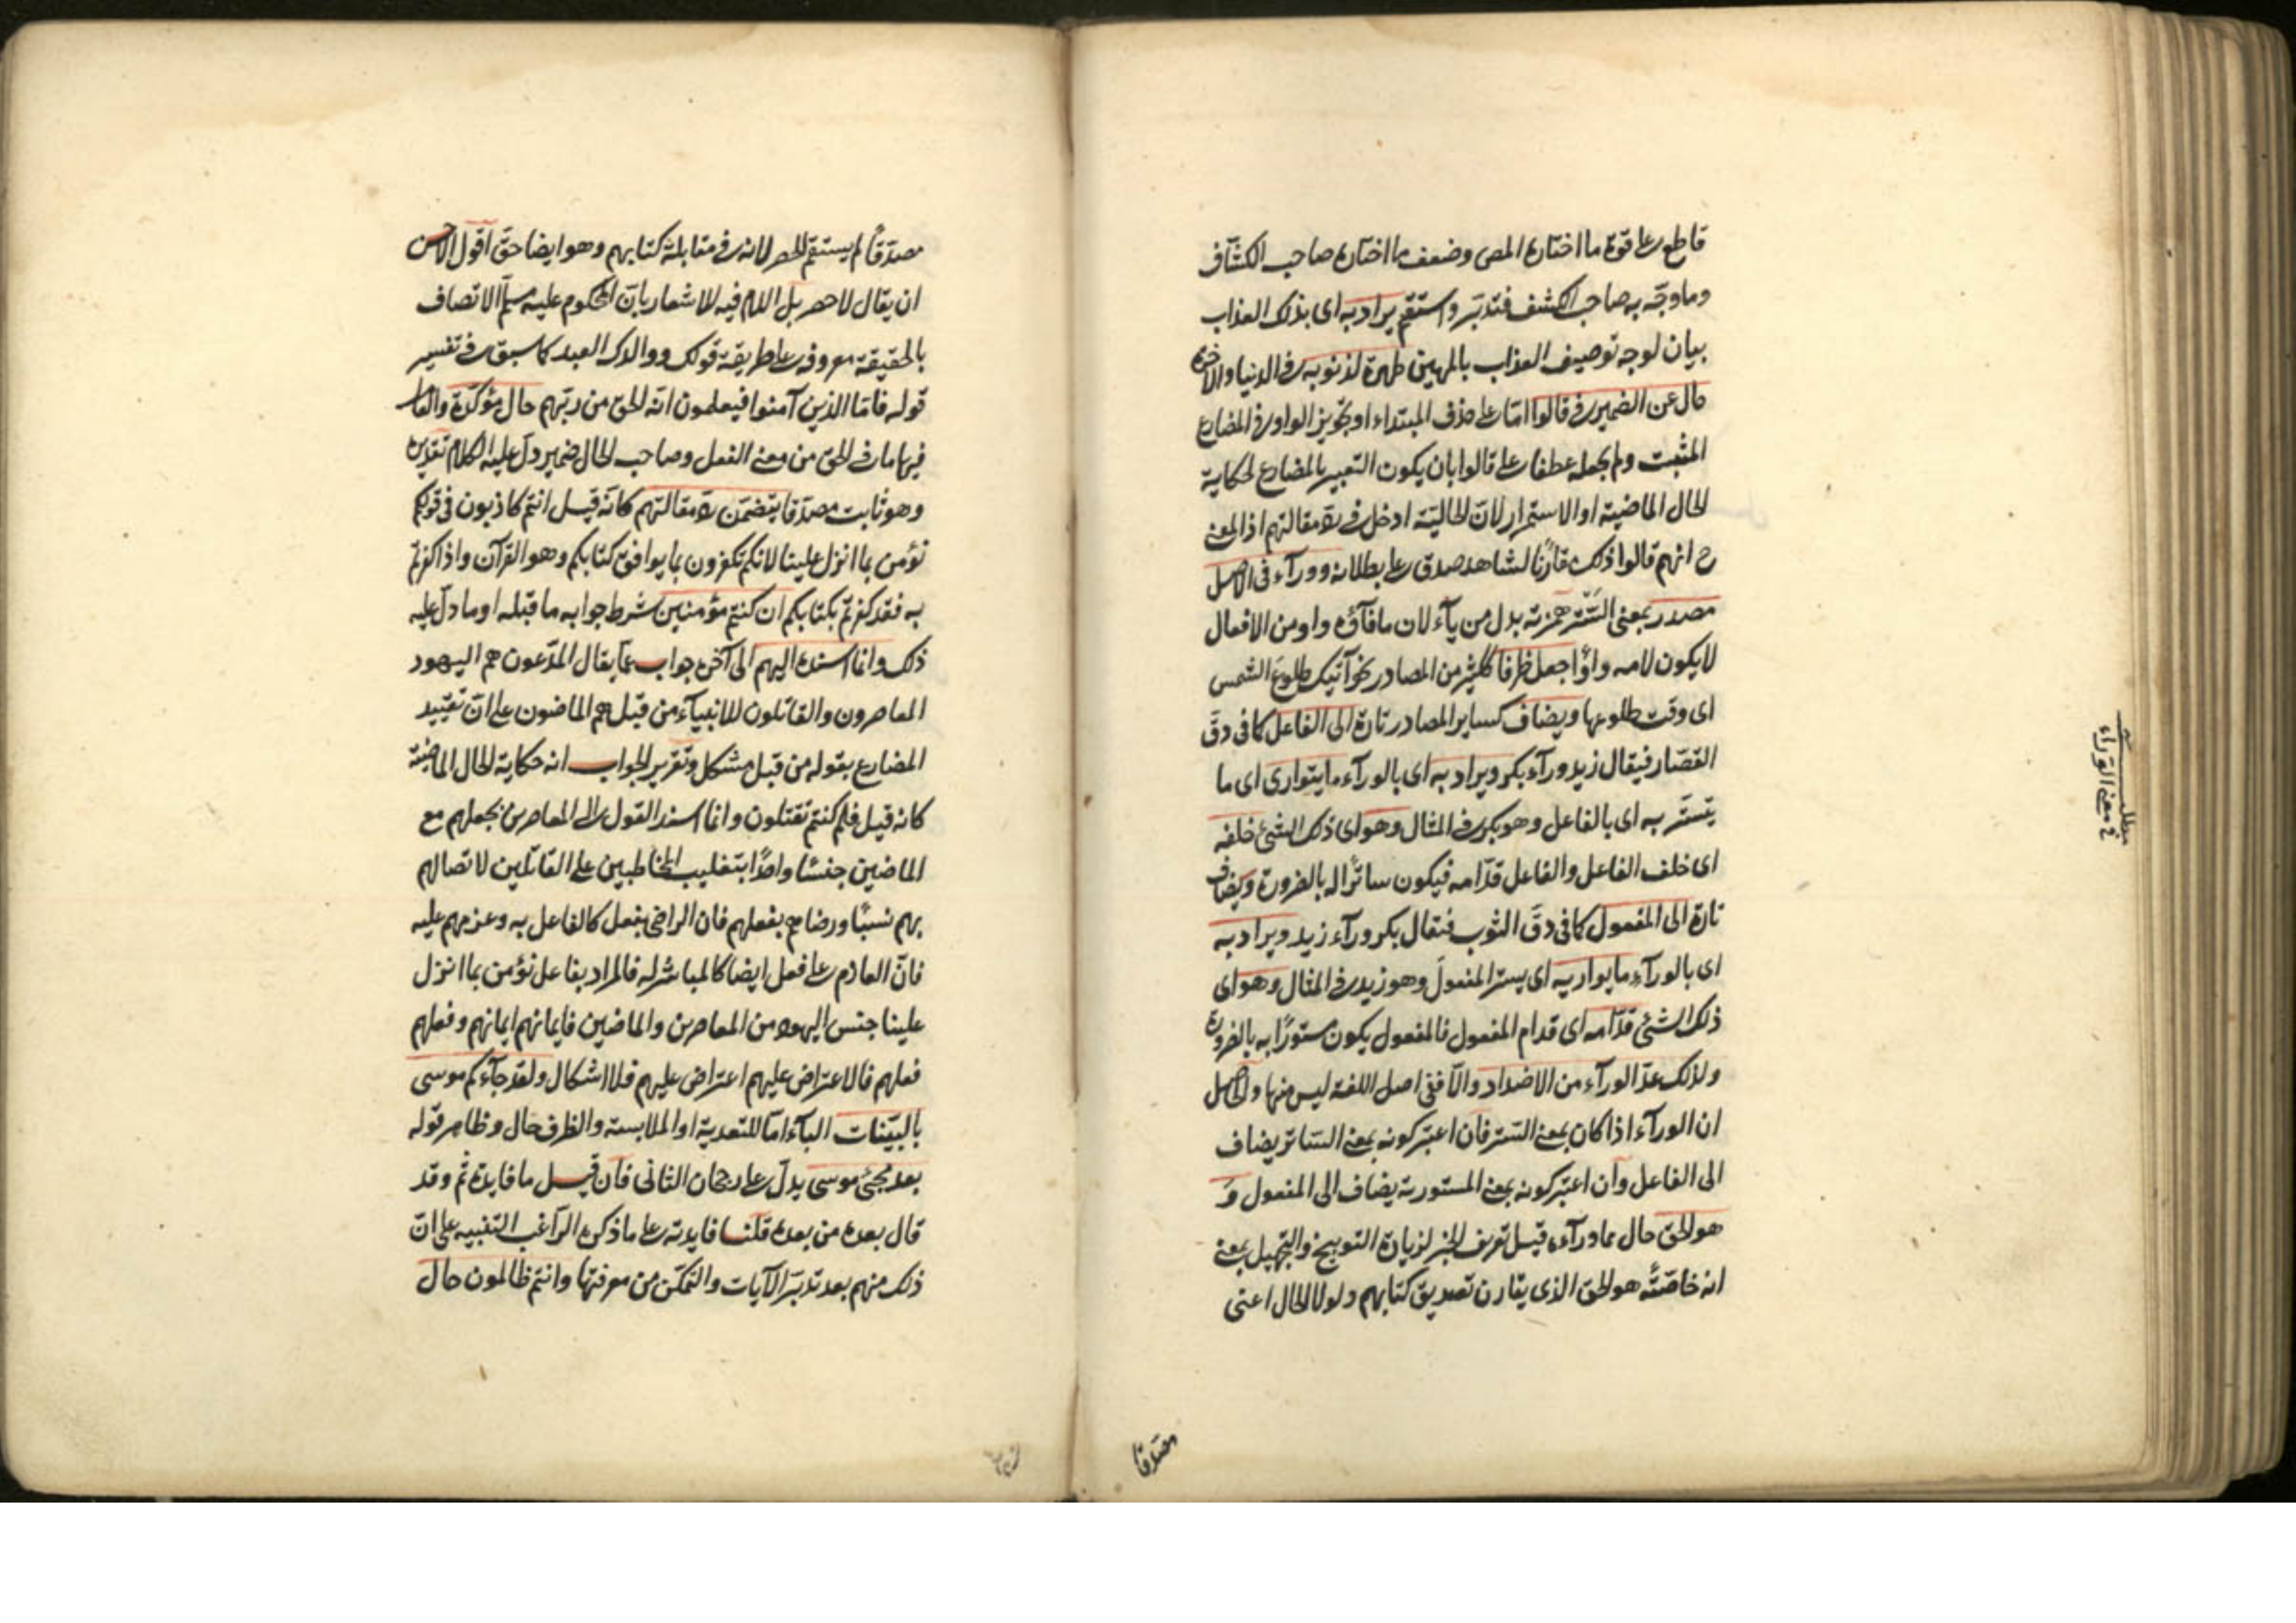 قاطع على قوة ما اختاره المص وضعف ما اختاره صاحب الكشاف
وما وجّه به صاحب الكشف فتدبّر واستقم يراد به اى بذلك العذاب
بيان لوجه توصيف العذاب بالمهين طهرة لذنوبه فى الدنيا والاخرة
حال عن الضمير فى قالوا امّا على حذف المبتداء او تجويز الواو فى المضارع
المثبت ولم يجعله عطفا على قالوا بان يكون التعبير بالمضارع لحكاية
الحال الماضية او الاستمرار لانّ الحاليّة ادخل فى ردّ مقالتهم اذ المعنى
ح انهم قالوا ذلك مقارنًا لشاهد صدق على بطلانه ووراء فى الاصل
مصدر بمعنى السّتر همزته بدل من ياء لان ما فآؤه واو من الافعال
لا يكون لامه واوًا جعل ظرفا ككثير من المصادر نحو آتيك طلوع الشمس
اى وقت طلوعها ويضاف كساير المصادر تارة الى الفاعل كما فى دقّ
القصّار فيقال زيد ورآء بكر ويراد به اى بالورآء ما يتوارى اى ما
يتستّر به اى بالفاعل وهو بكر فى المثال وهو اى ذلك الشئ خلفه
اى خلف الفاعل والفاعل قدّامه فيكون ساترًا له بالضرورة ويضاف
تارة الى المفعول كما فى دقّ الثوب فيقال بكر ورآء زيد ويراد به
اى بالورآء ما يواريه اى يستر المفعولَ وهو زيد فى المثال وهو اى
ذلك الشئ قدّامه اى قدام المفعول فالمفعول يكون مستورًا به بالضرورة
ولذلك عدّ الورآء من الاضداد والّا ففى اصل اللغة ليس منها والحاصل
ان الورآء اذا كان بمعنى الستر فان اعتبر كونه بمعنى الساتر يضاف
الى الفاعل وان اعتبر كونه بمعنى المستور به يضاف الى المفعول وَ
هو الحق حال مما ورآءه قيل تعريف الخبر لزيادة التوبيخ والتجهيل بمعنى
انه خاصّةً هو الحق الذى يقارن تصديق كتابهم ولولا الحال اعنى
مصدّقا
مطلب
فى معنى الوراء
مصدّقًا لم يستقم الحصر لانه فى مقابلة كتابهم وهو ايضا حق اقول الاحسن
ان يقال لا حصر بل اللام فيه للاشعار بانّ المحكوم عليه مسلّم الاتصاف
بالحقيقة معروفه على طريقة قولك ووالدك العبد كما سبق فى تفسير
قوله فامّا الذين آمنوا فيعلمون انّه الحق من ربّهم حال مؤكّدة والعامل
فيها ما فى الحق من معنى الفعل وصاحب الحال ضمير دلّ عليه الكلام تقديره
وهو ثابت مصدّقا يتضمّن ردّ مقالتهم كانّه قيل انتم كاذبون فى قولكم
نؤمن بما انزل علينا لانكم تكفرون بما يوافق كتابكم وهو القرآن واذا كفرتم
به فقد كفرتم بكتابكم ان كنتم مؤمنين شرط جوابه ما قبله او ما دلّ عليه
ذلك وانما اسنده اليهم الى آخره جواب عمّا يقال المدّعون هم اليهود
المعاصرون والقاتلون للانبيآء من قبل هم الماضون على انّ تقييد
المضارع بقوله من قبل مشكل وتقرير الجواب انه حكاية الحال الماضية
كانه قيل فلم كنتم تقتلون وانما اسند القول الى المعاصرين بجعلهم مع
الماضين جنسًا واحدًا بتغليب المخاطبين على القاتلين لاتصالهم
بهم نسبًا ورضاهم بفعلهم فان الراضى بفعل كالفاعل به وعزمهم عليه
فانّ العازم على فعل ايضا كالمباشر له فالمراد بفاعل نؤمن بما انزل
علينا جنس اليهود من المعاصرين والماضين فايمانهم ايمانهم وفعلهم
فعلهم فالاعتراض عليهم اعتراض عليهم فلا اشكال ولقد جآءكم موسى
بالبيّنات البآء امّا للتعدية او الملابسة والظرف حال وظاهر قوله
بعد مجئ موسى يدلّ على رجحان الثانى فان قيل ما فايدة ثمّ وقد
قال بعده من بعده قلنا فايدته على ما ذكره الراغب التنبيه على انّ
ذلك منهم بعد تدبّر الآيات والتمكّن من معرفتها وانتم ظالمون حال